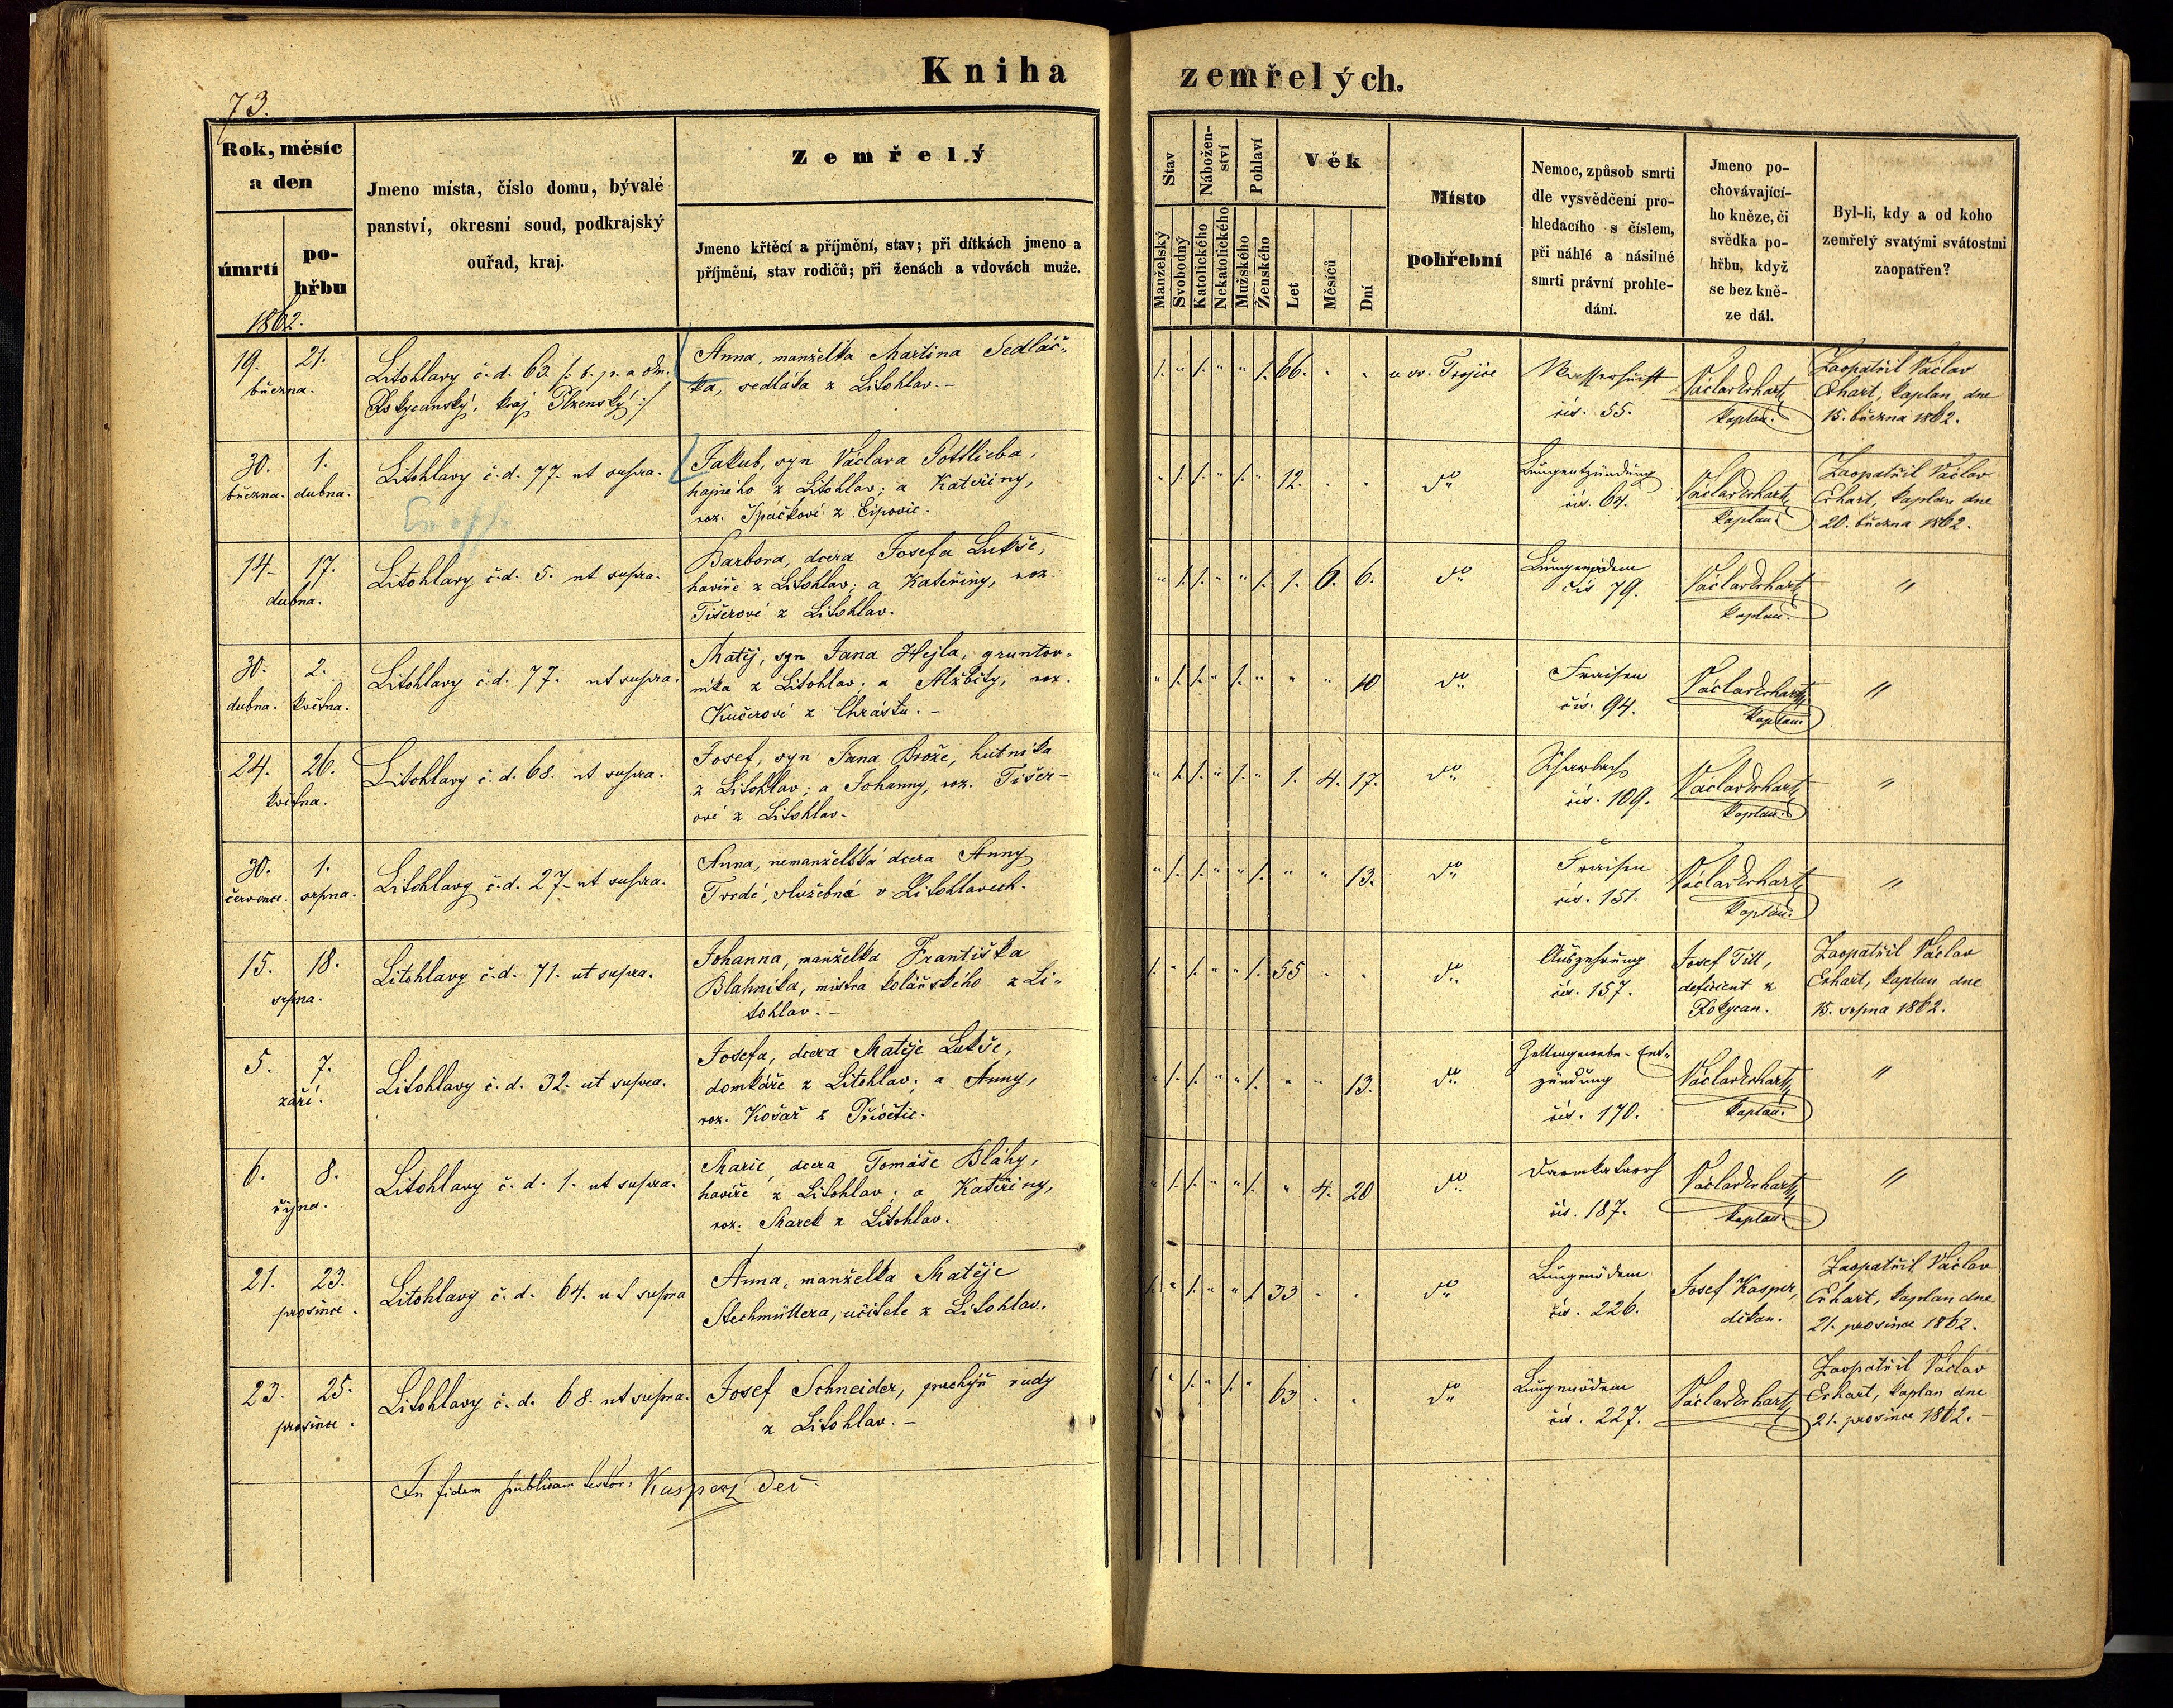 Kniha zemřelých.
73.
Rok, měsíc
a den
úmrtí
po-
hřbu
1862.
Jmeno místa, číslo domu, bývalé
panství, okresní soud, podkrajský
ouřad, kraj.
Zemřelý
Jmeno křtěcí a příjmění, stav; při dítkách jmeno a
příjmění, stav rodičů; při ženách a vdovách muže.
Stav
Manželský
Svobodný
Nábožen-
ství
Katolického
Nekatolického
Pohlaví
Mužského
Ženského
Věk
Let
Měsíců
Dní
Místo
pohřební
Nemoc, způsob smrti
dle vysvědčení pro-
hledacího s číslem,
při náhlé a násilné
smrti právní prohle-
dání.
Jmeno po-
chovávající-
ho kněze, či
svědka po-
hřbu, když
se bez kně-
ze dál.
Byl-li, kdy a od koho
zemřelý svatými svátostmi
zaopatřen?
19. 21.
března.
Litohlavy č. d. 63. /: b. p. a okr.
Rokycanský, kraj Plzenský :/
Anna, manželka Martina Sedláč-
ka, sedláka z Litohlav. -
/. " /. " " /. 66. . .
u sv. Trojice
Wassersucht
čís. 55.
Václav Erhart,
kaplan.
Zaopatřil Václav
Erhart, kaplan, dne
15. března 1862.
30. 1.
března. dubna.
Litohlavy č. d. 77. ut supra.
Jakub, syn Václava Pottlieba,
hajného z Litohlav; a Kateřiny,
roz. Špačkové z Ejpovic.
" /. /. " /. " 12. . .
dto
Lungentzündung
čís. 64.
Václav Erhart,
kaplan.
Zaopatřil Václav
Erhart, kaplan dne
20. března 1862.
14. 17.
dubna.
Litohlavy č. d. 5. ut supra.
Barbora, dcera Josefa Lukše,
havíře z Litohlav; a Kateřiny, roz.
Tišerové z Litohlav.
" /. /. " " /. 1. 6. 6.
dto
Lungenödem
čís 79.
Václav Erhart,
kaplan.
"
30. 2.
dubna. května.
Litohlavy č. d. 77. ut supra.
Matěj, syn Jana Hejla, gruntov-
níka z Litohlav; a Alžběty, roz.
Kučerové z Chrástu. -
" /. /. " /. " " " 10
dto
Fraisen
čís. 94.
Václav Erhart,
kaplan.
"
24. 26.
května.
Litohlavy č. d. 68. ut supra.
Josef, syn Jana Brože, hutníka
z Litohlav; a Johanny, roz. Tišer-
ové z Litohlav.
" /. /. " /. " 1. 4. 17.
dto
čís. 109.
Václav Erhart,
kaplan.
"
30. 1.
července. srpna.
Litohlavy č. d. 27. ut supra.
Anna, nemanželská dcera Anny
Tvrdé, služebná v Litohlavech.
" /. /. " " /. " " 13.
dto
Fraisen
čís. 151.
Václav Erhart,
kaplan.
"
15. 18.
srpna.
Litohlavy č. d. 71. ut supra.
Johanna, manželka Františka
Blahníka, mistra kolářského z Li-
tohlav. -
/. " /. " " /. 55 . .
dto
Auszehrung
čís. 157.
Josef Till,
deficient z
Rokycan.
Zaopatřil Václav
Erhart, kaplan dne
15. srpna 1862.
5. 7.
září.
Litohlavy č. d. 32. ut supra.
Josefa, dcera Matěje Lukše,
domkáře z Litohlav; a Anny,
roz. Košař z Příštic.
" /. /. " " /. " " 13.
dto
Zellengewebe-Ent-
zündung
čís. 170.
Václav Erhart,
kaplan.
"
6. 8.
října.
Litohlavy č. d. 1. ut supra.
Marie, dcera Tomáše Bláhy,
havíře z Litohlav; a Kateřiny,
roz. Marek z Litohlav.
" /. /. " " /. " 4. 20
dto
Darmkatarrh
čís. 187.
Václav Erhart,
kaplan.
"
21. 23.
prosince.
Litohlavy č. d. 64. ut supra
Anna, manželka Matěje
Stechmüllera, učitele z Litohlav.
/. " /. " " /. 33 . .
dto
Lungenödem
čís. 226.
Josef Kasper,
děkan.
Zaopatřil Václav
Erhart, kaplan dne
21. prosince 1862.
23. 25.
prosince.
Litohlavy č. d. 68. ut supra.
Josef Schneider, rudy
z Litohlav. -
/. " /. " /. " 63 . .
dto
Lungenödem
čís. 227.
Václav Erhart,
Zaopatřil Václav
Erhart, kaplan dne
21. prosince 1862. -
In fidem publicam testor: Kasperz Děč